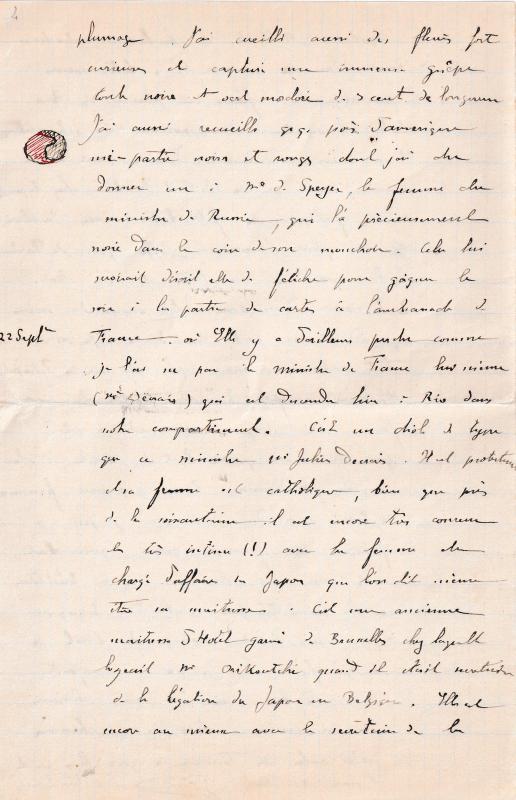 2
plumage. J'ai cueilli aussi des fleurs fort
curieuses et capturé une immense guêpe
toute noire et vert modoré de 5 cent. de longueur
J'ai aussi recueilli qq. pois d'Amérique
mi-partie noirs et rouges dont j'ai du
donner un à Me de Speyer, la femme du
ministre de Russie, qui l'a précieusement
noué dans le coin de son mouchoir. Cela lui
servirait disait elle de fétiche pour gagner le
soir à la partie de cartes à l'ambassade de
22 Sept France où Elle y a d'ailleurs perdu comme
je l'ai su par le ministre de France lui même
(Mr Decrais) qui est descendu hier à Rio dans
notre compartiment. C'est un drôle de type
que ce ministre Mr Julien Decrais. Il est protestant
et sa femme est catholique, bien que près
de la soixantaine il est encore très coureur
et très intime (!) avec la femme du
chargé d'affaires du Japon que l'on dit même
être sa maitresse. C'est une ancienne
maitresse d'Hotel garni de Bruxelles chez laquelle
logeait Mr quand il était secrétaire
de la légation du Japon en Belgique. Elle est
encore au mieux avec le secrétaire de la